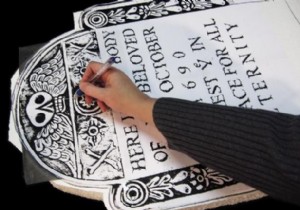 HERE
BODY
OF BELOVED
OCTOBER
1690
REST Y IN
PEACE FOR ALL
ETERNITY